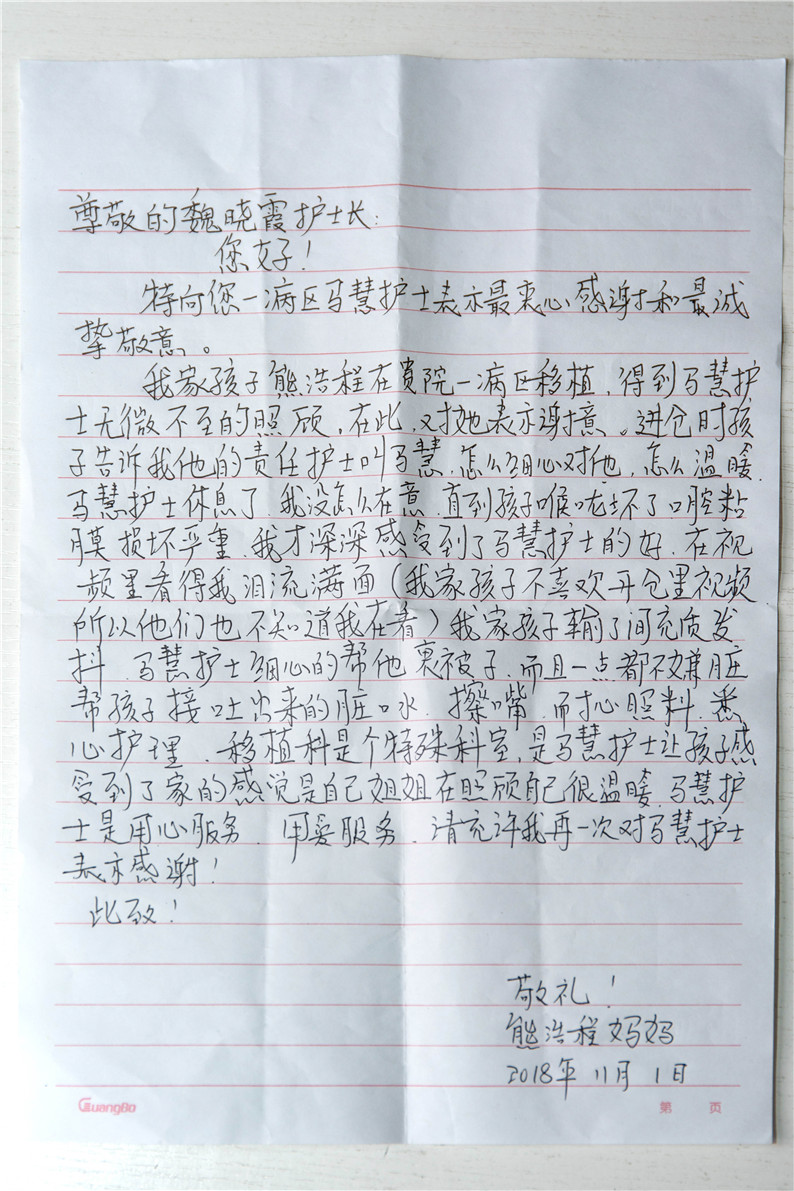 尊敬的魏晓霞护士长:
您好!
特向您一病区马慧护士表示最衷心感谢和最诚
挚敬意。
我家孩子熊浩程在贵院一病区移植,得到马慧护
士无微不至的照顾,在此,对她表示谢意。进仓时孩
子告诉我他的责任护士叫马慧,怎么细心对他,怎么温暖.
马慧护士休息了.我没怎么在意.直到孩子喉咙坏了口腔粘
膜损坏严重.我才深深感受到了马慧护士的好.在视
频里看得我泪流满面(我家孩子不喜欢开仓里视频
所以他们也不知道我在看)我家孩子输了间充质发
抖.马慧护士细心的帮他裹被子.而且一点都不嫌脏
帮孩子接吐出来的脏口水.擦嘴.耐心照料.悉
心护理.移植科是个特殊科室,是马慧护士让孩子感
受到了家的感觉是自己姐姐在照顾自己很温暖.马慧护
士是用心服务.用爱服务.请允许我再一次对马慧护士
表示感谢!
此致!
敬礼!
熊浩程妈妈
2018年11月1日
GuangBo 第 页